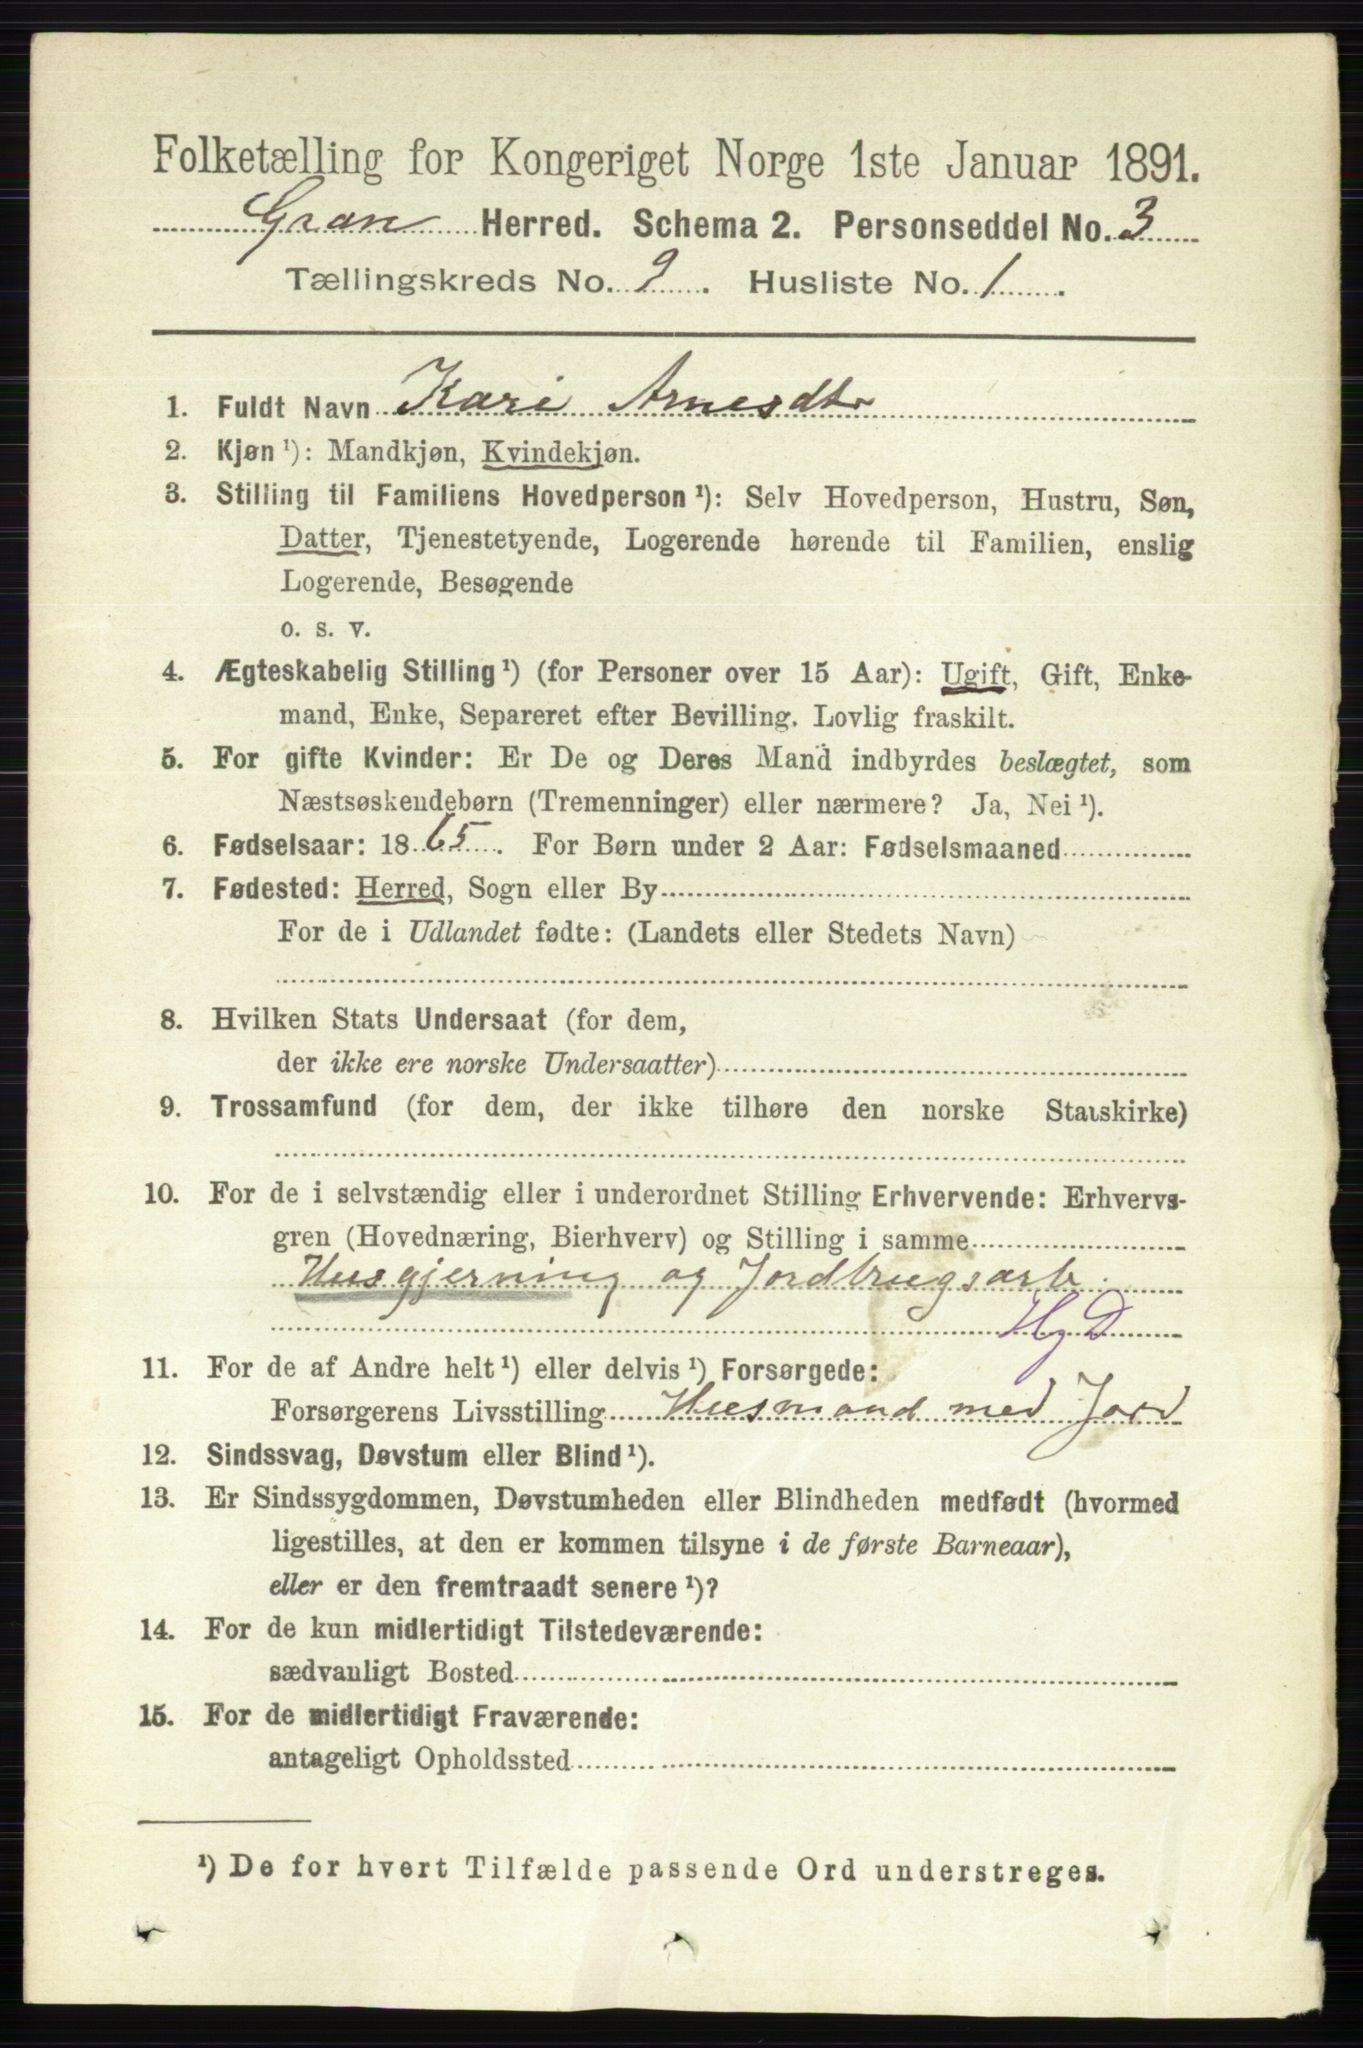 Folketælling for Kongeriget Norge 1ste Januar 1891.
Gran Herred. Schema 2. Personseddel No. 3
Tællingskreds No. 9. Husliste No. 1.
1. Fuldt Navn Kari Arnesdtr
2. Kjøn ¹): Mandkjøn, Kvindekjøn.
3. Stilling til Familiens Hovedperson ¹): Selv Hovedperson, Hustru, Søn,
Datter, Tjenestetyende, Logerende hørende til Familien, enslig
Logerende, Besøgende
o. s. v.
4. Ægteskabelig Stilling ¹) (for Personer over 15 Aar): Ugift, Gift, Enke-
mand, Enke, Separeret efter Bevilling. Lovlig fraskilt.
5. For gifte Kvinder: Er De og Deres Mand indbyrdes beslægtet, som
Næstsøskendebørn (Tremenninger) eller nærmere? Ja, Nei ¹).
6. Fødselsaar: 1865. For Børn under 2 Aar: Fødselsmaaned
7. Fødested: Herred, Sogn eller By
For de i Udlandet fødte: (Landets eller Stedets Navn)
8. Hvilken Stats Undersaat (for dem,
der ikke ere norske Undersaatter)
9. Trossamfund (for dem, der ikke tilhøre den norske Statskirke)
10. For de i selvstændig eller i underordnet Stilling Erhvervende: Erhvervs-
gren (Hovednæring, Bierhverv) og Stilling i samme
Husgjerning og Jordbrugsarb.
Hg D
11. For de af Andre helt ¹) eller delvis ¹) Forsørgede:
Forsørgerens Livsstilling Husmand med Jord
12. Sindssvag, Døvstum eller Blind ¹).
13. Er Sindssygdommen, Døvstumheden eller Blindheden medfødt (hvormed
ligestilles, at den er kommen tilsyne i de første Barneaar),
eller er den fremtraadt senere ¹)?
14. For de kun midlertidigt Tilstedeværende:
sædvanligt Bosted
15. For de midlertidigt Fraværende:
antageligt Opholdssted
¹) De for hvert Tilfælde passende Ord understreges.